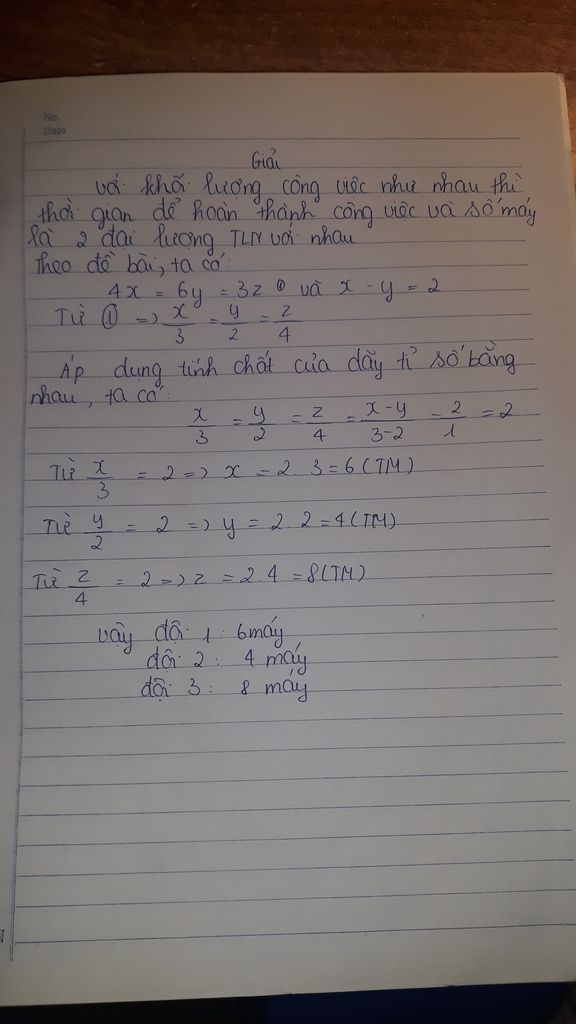 No.
Date
Giải
với khối lượng công việc như nhau thì
thời gian để hoàn thành công việc và số máy
là 2 đại lượng TLN với nhau
Theo đề bài, ta có:
4x = 6y = 3z ① và x - y = 2
Từ ① => x/3 = y/2 = z/4
Áp dụng tính chất của dãy tỉ số bằng
nhau, ta có:
x/3 = y/2 = z/4 = x-y/3-2 = 2/1 = 2
Từ x/3 = 2 => x = 2.3 = 6 (TM)
Từ y/2 = 2 => y = 2.2 = 4 (TM)
Từ z/4 = 2 => z = 2.4 = 8 (TM)
vậy đội 1: 6 máy
đội 2: 4 máy
đội 3: 8 máy